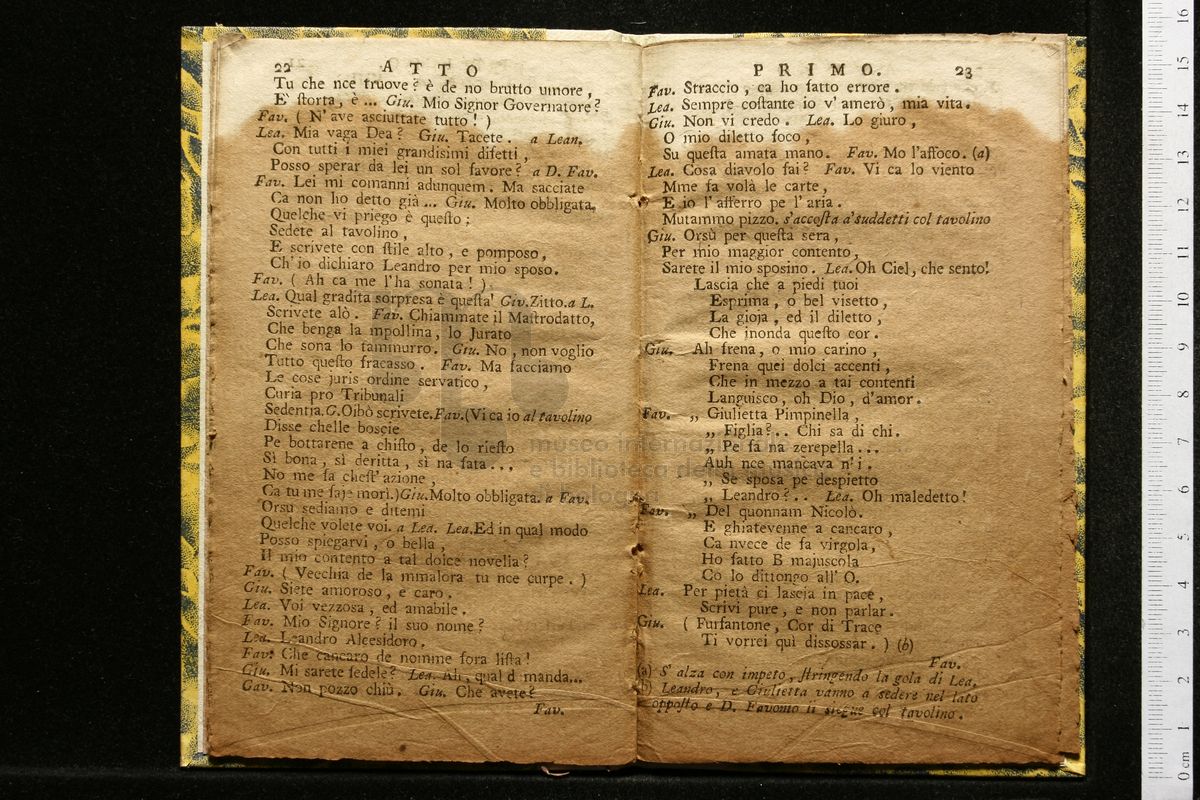 22 ATTO
Tu che nce truove? è de no brutto umore,
E' ſtorta, è ... Giu. Mio Signor Governatore?
Fav. ( N' ave asciuttate tutto! )
Lea. Mia vaga Dea? Giu. Tacete. a Lean.
Con tutti i miei grandisimi difetti,
Posso sperar da lei un sol favore? a D. Fav.
Fav. Lei mi comanni adunquem. Ma sacciate
Ca non ho detto già ... Giu. Molto obbligata.
Quelche vi priego è queſto;
Sedete al tavolino,
E scrivete con ſtile alto, e pomposo,
Ch' io dichiaro Leandro per mio sposo.
Fav. ( Ah ca me l'ha sonata! )
Lea. Qual gradita sorpresa è queſta! Giv. Zitto. a L.
Scrivete alò. Fav. Chiammate il Maſtrodatto,
Che benga la mpollina, lo Jurato
Che sona lo tammurro. Giu. No, non voglio
Tutto queſto fracasso. Fav. Ma facciamo
Le cose juris ordine servatico,
Curia pro Tribunali
Sedentia. G. Oibò scrivete. Fav. (Vi ca io al tavolino
Disse chelle boscie
Pe bottarene a chiſto, de lo rieſto
Sì bona, sì deritta, sì na fata...
No me fa cheſt' azione,
Ca tu me faje morì.) Giu. Molto obbligata. a Fav.
Orsù sediamo e ditemi
Quelche volete voi. a Lea. Lea. Ed in qual modo
Posso spiegarvi, o bella,
Il mio contento a tal dolce novella?
Fav. ( Vecchia de la mmalora tu nce curpe. )
Giu. Siete amoroso, e caro.
Lea. Voi vezzosa, ed amabile.
Fav. Mio Signore? il suo nome?
Lea. Leandro Alcesidoro.
Fav. Che cancaro de nomme fora liſta!
Giu. Mi sarete fedele? Lea. Ah, qual d manda...
Gav. Non pozzo chiù. Giu. Che avete?
Fav.
PRIMO. 23
Fav. Straccio, ca ho fatto errore.
Lea. Sempre coſtante io v' amerò, mia vita.
Giu. Non vi credo. Lea. Lo giuro,
O mio diletto foco,
Su queſta amata mano. Fav. Mo l'affoco. (a)
Lea. Cosa diavolo fai? Fav. Vi ca lo viento
Mme fa volà le carte,
E io l' afferro pe l' aria.
Mutammo pizzo. s'accoſta a' suddetti col tavolino
Giu. Orsù per queſta sera,
Per mio maggior contento,
Sarete il mio sposino. Lea. Oh Ciel, che sento!
Lascia che a piedi tuoi
Esprima, o bel visetto,
La gioja, ed il diletto,
Che inonda queſto cor.
Giu. Ah frena, o mio carino,
Frena quei dolci accenti,
Che in mezzo a tai contenti
Languisco, oh Dio, d'amor.
Fav. „ Giulietta Pimpinella,
„ Figlia?.. Chi sa di chi.
„ Pe fa na zerepella...
Auh nce mancava
„ Se sposa pe despietto
„ Leandro?.. Lea. Oh maledetto!
Fav. „ Del quonnam Nicolò.
E ghiatevenne a cancaro,
Ca nvece de fa virgola,
Ho fatto B majuscola
Co lo dittongo all' O.
Lea. Per pietà ci lascia in pace,
Scrivi pure, e non parlar.
Giu. ( Furfantone, Cor di Trace
Ti vorrei quì dissossar. ) (b)
Fav.
(a) S' alza con impeto, ſtringendo la gola di Lea.
(b) Leandro, e Giulietta vanno a sedere nel lato
oppoſto e D. Favonio li siegue col tavolino.
museo internazionale
e biblioteca della musica
di bologna
0 cm 1 2 3 4 5 6 7 8 9 10 11 12 13 14 15 16